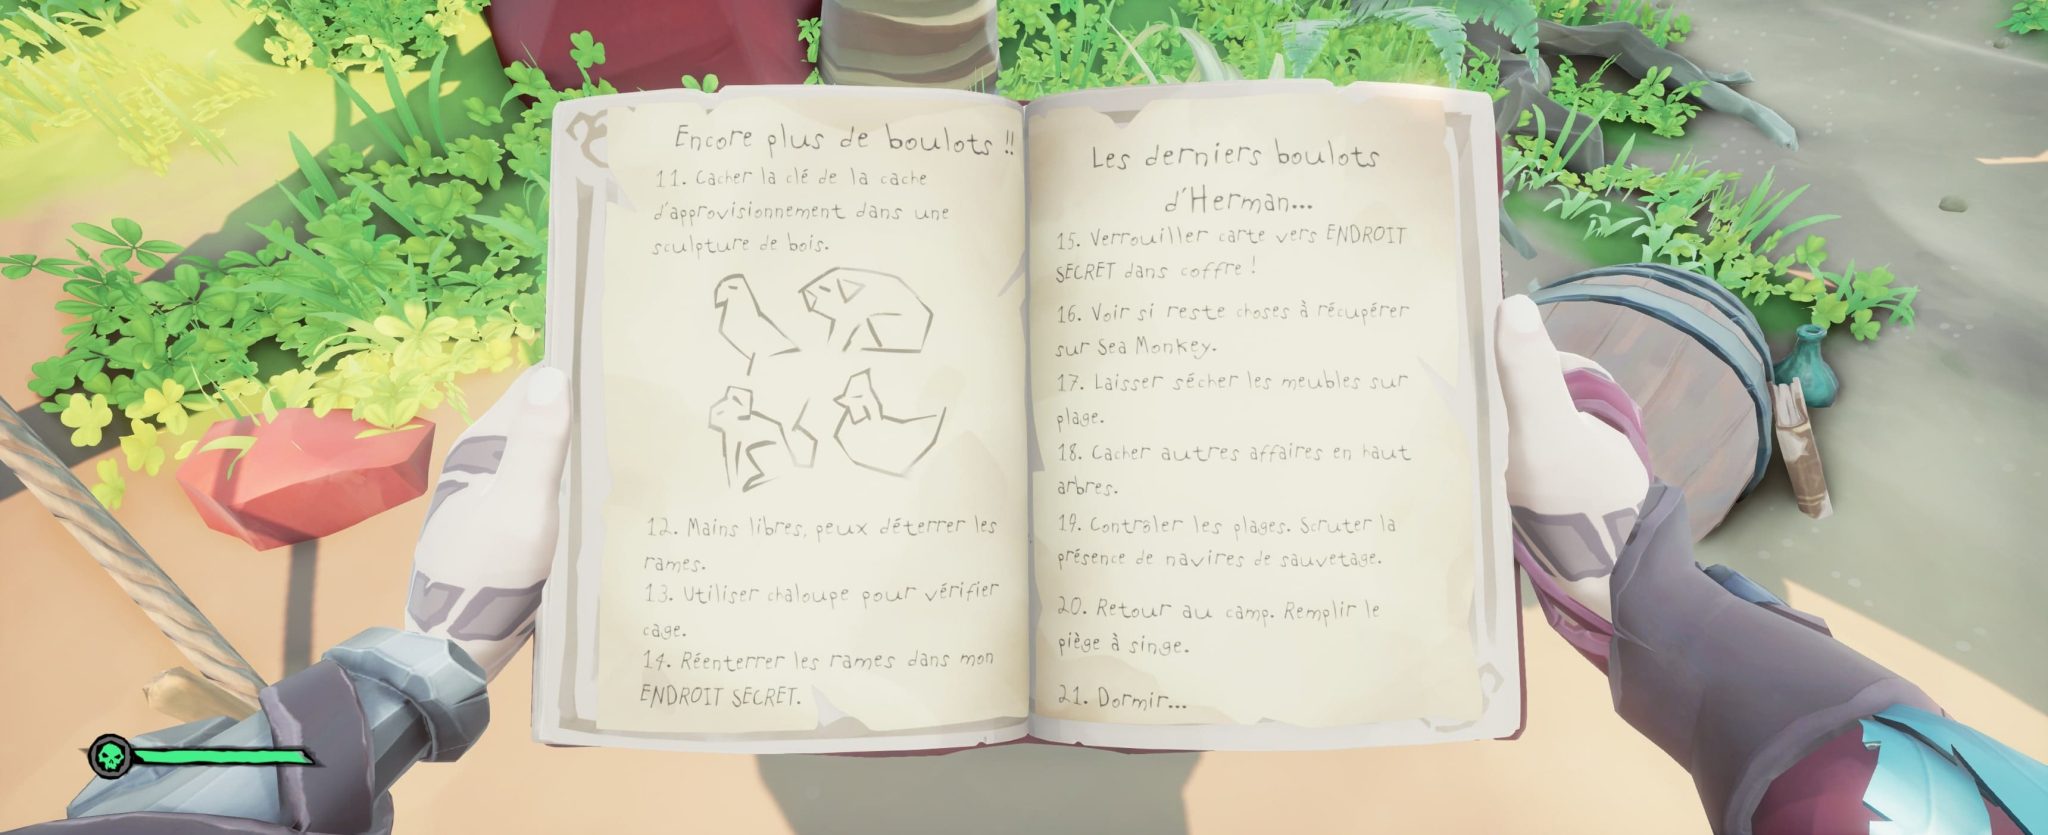 Encore plus de boulots !!
11. Cacher la clé de la cache
d'approvisionnement dans une
sculpture de bois.
12. Mains libres, peux déterrer les
rames.
13. Utiliser chaloupe pour vérifier
cage.
14. Réenterrer les rames dans mon
ENDROIT SECRET.
Les derniers boulots
d'Herman...
15. Verrouiller carte vers ENDROIT
SECRET dans coffre !
16. Voir si reste choses à récupérer
sur Sea Monkey.
17. Laisser sécher les meubles sur
plage.
18. Cacher autres affaires en haut
arbres.
19. Contrôler les plages. Scruter la
présence de navires de sauvetage.
20. Retour au camp. Remplir le
piège à singe.
21. Dormir...